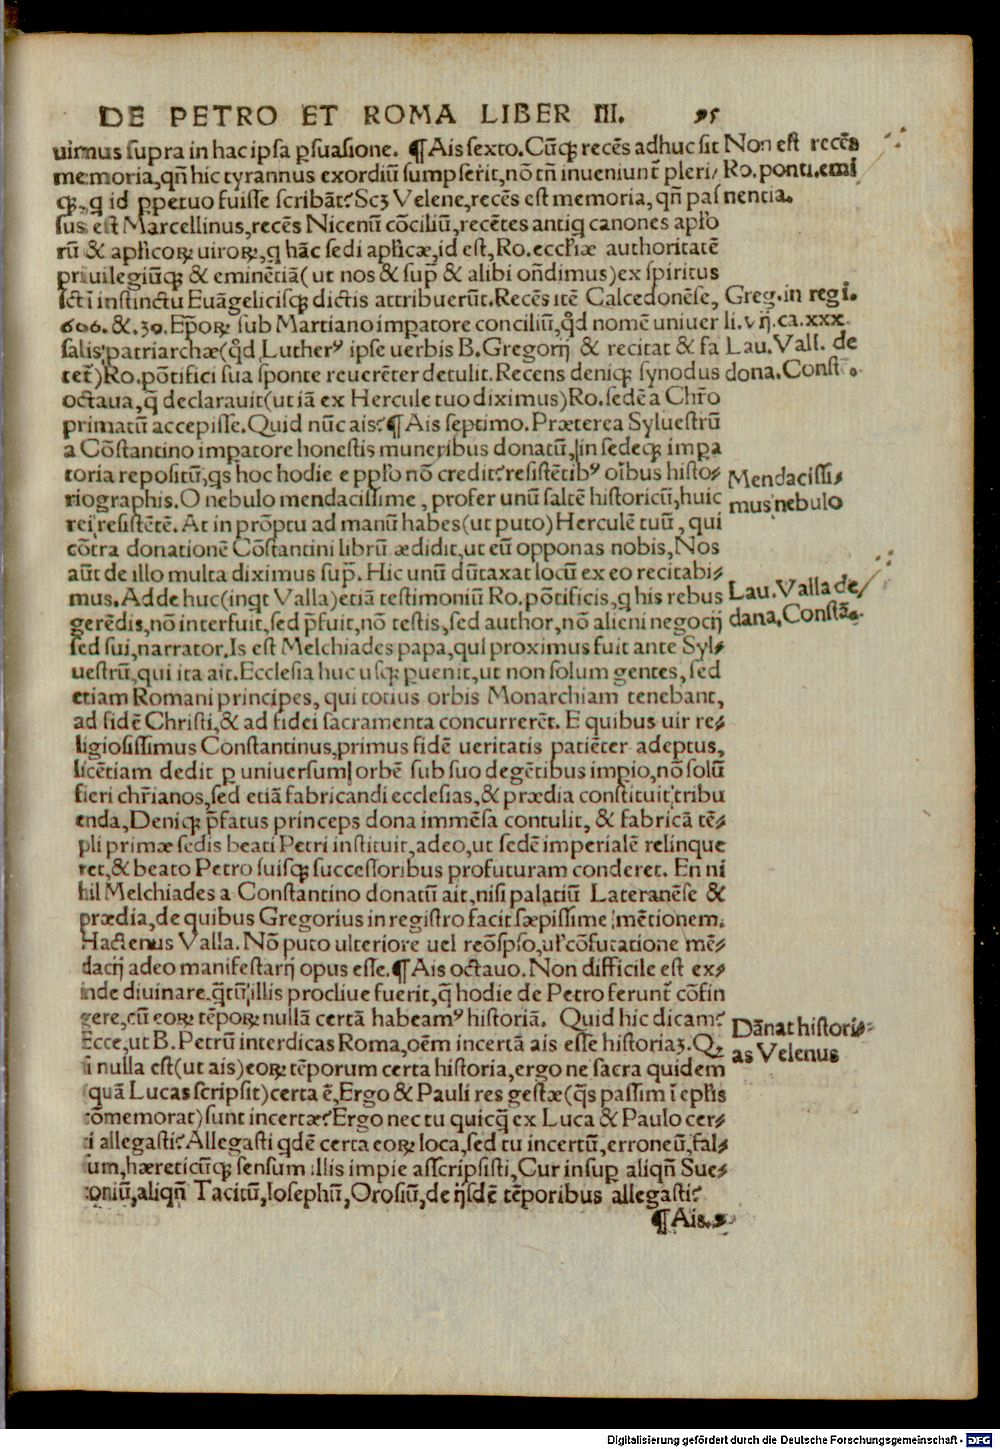 DE PETRO ET ROMA LIBER III. 95
uimus supra in hac ipsa p̱suasione. ¶Ais sexto. Cũqꝫ recẽs adhuc sit
memoria, qñ hic tyrannus exordiũ sumpserit, nõ tñ inueniunt̃ pleri/
qꝫ, q id ꝑpetuo fuisse scribãt? Scꝫ Velene, recẽs est memoria, qñ pas
sus est Marcellinus, recẽs Nicenũ cõciliũ, recẽtes antiq canones aplo
rũ & aplicoꝝ uiroꝝ, q hãc sedi aplicæ, id est, Ro. eccliæ authoritatẽ
priuilegiũqꝫ & eminẽtiã (ut nos & sup̃ & alibi oñdimus) ex spiritus
scti instinctu Euãgelicisqꝫ dictis attribuerũt. Recẽs itẽ Calcedonẽse,
606. &. 30. Ep̃oꝝ sub Martiano imp̱atore conciliũ, qd̃ nomẽ uniuer
salis patriarchæ (qd̃ Lutherꝰ ipse uerbis B. Gregorij & recitat & fa
tet̃) Ro. põtifici sua sponte reuerẽter detulit. Recens deniqꝫ synodus
octaua, q̃ declarauit (ut iã ex Hercule tuo diximus) Ro. sedẽ a Chr̃o
primatũ accepisse. Quid nũc ais? ¶Ais septimo. Præterea Syluestrũ
a Cõstantino imp̱atore honestis muneribus donatũ, in sedeqꝫ imp̱a
toria repositũ, qs hoc hodie e pplo nõ credit? resistẽtibꝰ oibus histo⸗
riographis. O nebulo mendacissime, profer unũ saltẽ historicũ, huic
rei resistẽtẽ. At in prõptu ad manũ habes (ut puto) Herculẽ tuũ, qui
cõtra donationẽ Cõstantini librũ ædidit, ut eũ opponas nobis, Nos
aũt de illo multa diximus sup̃. Hic unũ dũtaxat locũ ex eo recitabi⸗
mus. Adde huc (inqt Valla) etiã testimoniũ Ro. põtificis, q his rebus
gerẽdis, nõ interfuit, sed p̃fuit, nõ testis, sed author, nõ alieni negocij
sed sui, narrator. Is est Melchiades papa, qui proximus fuit ante Syl⸗
uestrũ, qui ita ait. Ecclesia huc usqꝫ p̱uenit, ut non solum gentes, sed
etiam Romani principes, qui totius orbis Monarchiam tenebant,
ad fidẽ Christi, & ad fidei sacramenta concurrerẽt. E quibus uir re⸗
ligiosissimus Constantinus, primus fidẽ ueritatis patiẽter adeptus,
licẽtiam dedit ꝑ uniuersum orbẽ sub suo degẽtibus impio, nõ solũ
fieri chr̃ianos, sed etiã fabricandi ecclesias, & prædia constituit tribu
enda, Deniqꝫ p̃fatus princeps dona immẽsa contulit, & fabricã tẽ⸗
pli primæ sedis beati Petri instituit, adeo, ut sedẽ imperialẽ relinque
ret, & beato Petro suisqꝫ successoribus profuturam conderet. En ni
hil Melchiades a Constantino donatũ ait, nisi palatiũ Lateranẽse &
prædia, de quibus Gregorius in registro facit sæpissime mẽtionem.
Hactenus Valla. Nõ puto ulteriore uel reõspso, ul cõfutatione mẽ⸗
dacij adeo manifestarij opus esse. ¶Ais octauo. Non difficile est ex⸗
inde diuinare, q̃tũ illis procliue fuerit, q̃ hodie de Petro ferunt̃ cõfin
gere, cũ eoꝝ tẽpoꝝ nullã certã habeamꝰ historiã. Quid hic dicam?
Ecce, ut B. Petrũ interdicas Roma, oẽm incertã ais esse historiaꝫ. Qꝫ
si nulla est (ut ais) eoꝝ tẽporum certa historia, ergo ne sacra quidem
(quã Lucas scripsit) certa ẽ, Ergo & Pauli res gestæ (q̃s passim ĩ eplis
cõmemorat) sunt incertæ? Ergo nec tu quicq̃ ex Luca & Paulo cer⸗
ti allegasti? Allegasti qdẽ certa eoꝝ loca, sed tu incertũ, erroneũ, fal⸗
sum, hæreticũqꝫ sensum illis impie asscripsisti, Cur insup̱ aliqñ Sue⸗
toniũ, aliqñ Tacitũ, Iosephũ, Orosiũ, de ijsdẽ tẽporibus allegasti?
¶Ais.
Non est recẽs
Ro. ponti. emi
nentia.
Greg. in regi.
li. v ij. ca. xxx.
Lau. Vall. de
dona. Const.
Mendacissi⸗
mus nebulo
Lau. Valla de/
dana, Constã.
Dãnat histori⸗
as Velenus
Digitalisierung gefördert durch die Deutsche Forschungsgemeinschaft - DFG